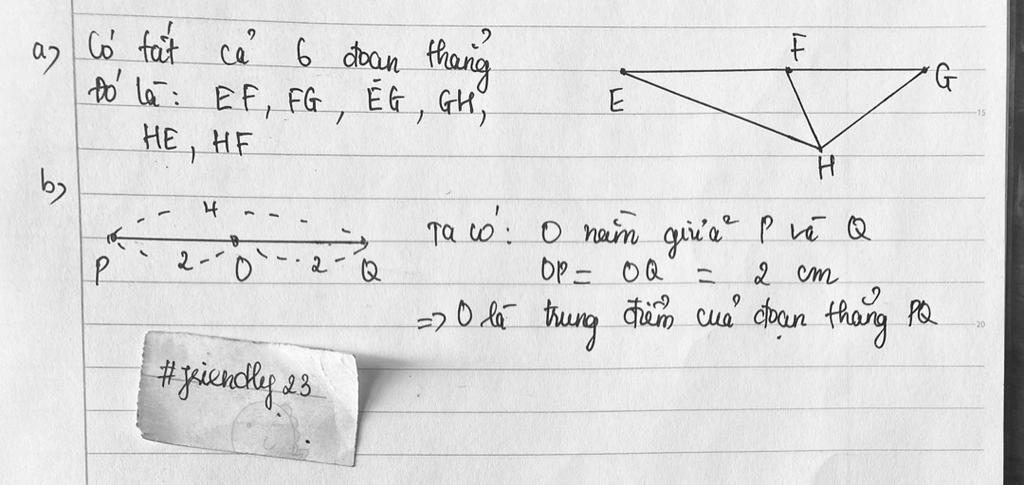 a) Có tất cả 6 đoạn thẳng
Đó là: EF, FG, EG, GH,
HE, HF
E F G H
b)
4
P 2 O 2 Q
Ta có: O nằm giữa P và Q
OP = OQ = 2 cm
=> O là trung điểm của đoạn thẳng PQ
#friendly23
15
20